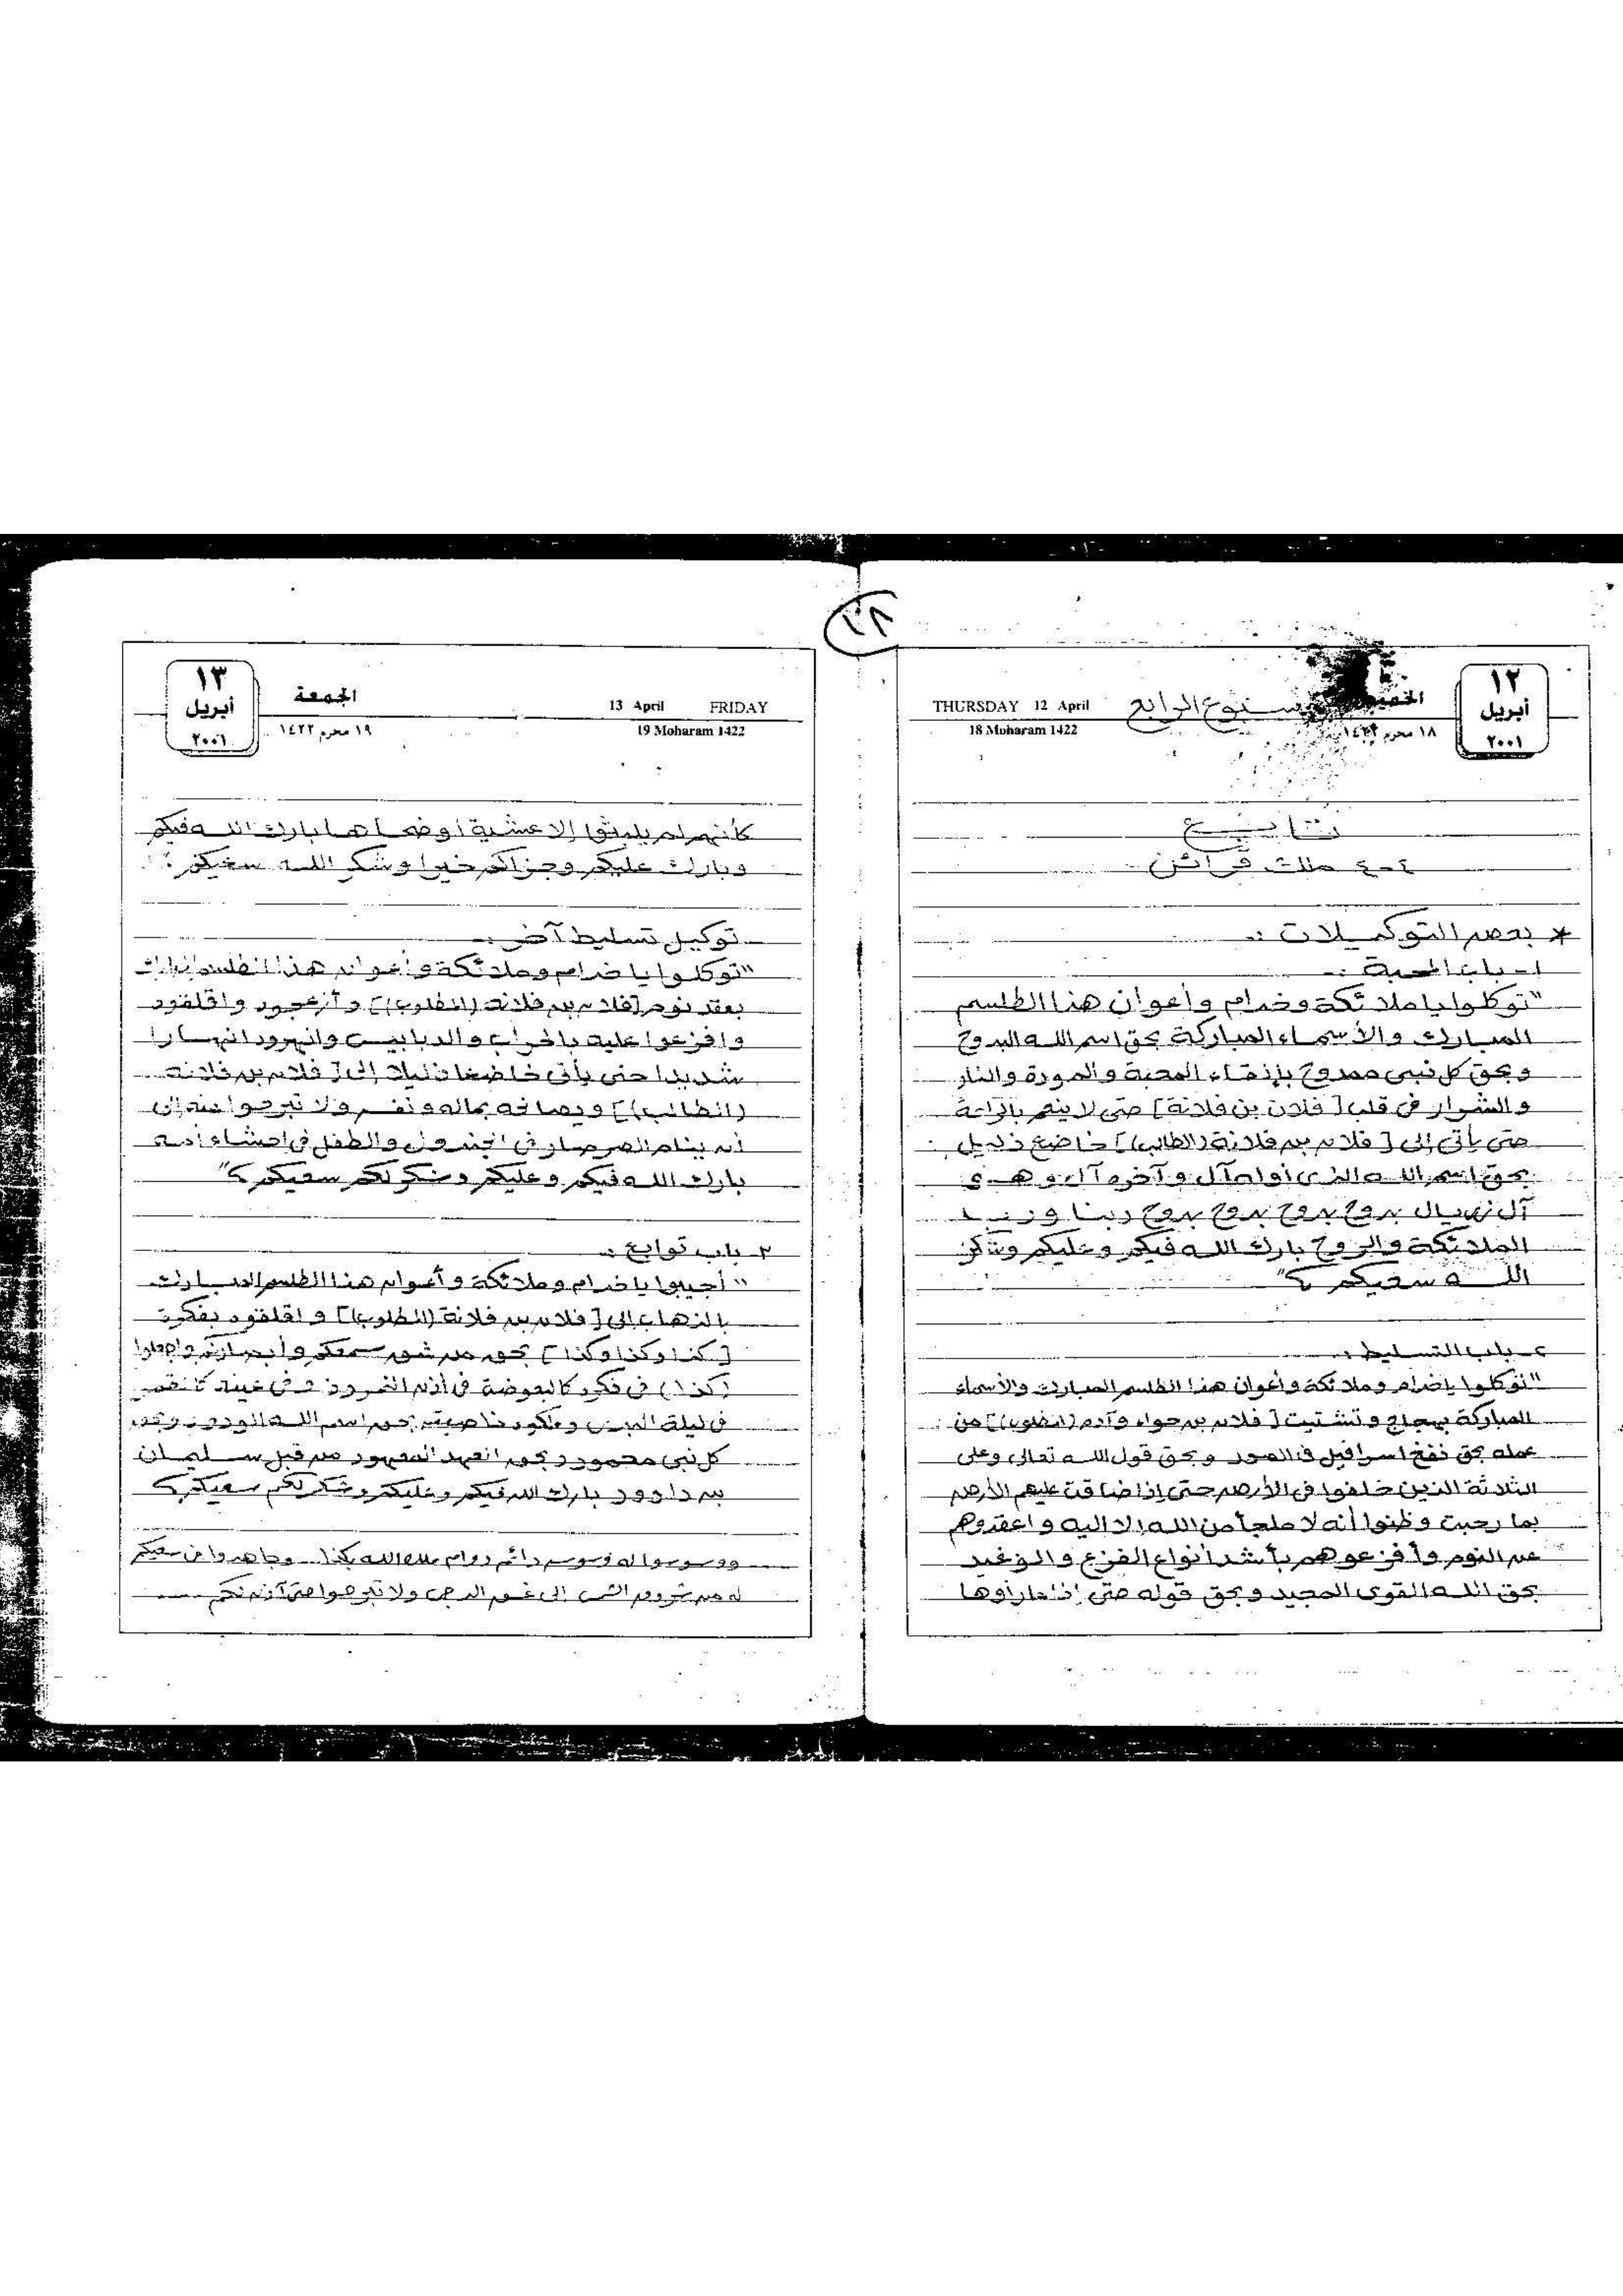 ٢٨
١٢
أبريل
٢٠٠١
THURSDAY 12 April
18 Moharam 1422
١٨ محرم ١٤٢٢
الرابع
* بعض التوكيلات :-
١- باب المحبة :-
"توكلوا يا ملائكة وخدام وأعوان هذا الطلسم
المبارك والأسماء المباركة بحق اسم الله البدوح
وبحق كل نبى ممدوح بإلقاء المحبة والمودة والنار
والشرار فى قلب [فلان بن فلانة] حتى لا ينعم بالراحة
حتى يأتى إلى [فلان بن فلانة (الطالب)] خاضع ذليل
بحق اسم الله الذى أوله آل وآخره آل وهو
آل بدوح بدوح بدوح بدوح ربنا ورب
الملائكة والروح بارك الله فيكم وعليكم وشكر
الله سعيكم"
٢- باب التسليط :-
"توكلوا يا خدام وملائكة وأعوان هذا الطلسم المبارك والأسماء
المباركة وتشتيت [فلان بن حواء وآدم (المطلوب)] من
عمله بحق نفخ اسرافيل فى الصور وبحق قول الله تعالى وعلى
الثلاثة الذين خلفوا فى الأرض حتى إذا ضاقت عليهم الأرض
بما رحبت وظنوا أنه لا ملجأ من الله إلا اليه واعقدوهم
عن النوم وأفزعوهم بأشد أنواع الفزع والوعيد
بحق الله القوى المجيد وبحق قوله حتى إذا ما رأوها
١٣
أبريل
٢٠٠١
الجمعة
١٩ محرم ١٤٢٢
13 April FRIDAY
19 Moharam 1422
كأنهم لم يلبثوا إلا عشية أو ضحاها بارك الله فيكم
وبارك عليكم وجزاكم خيرا وشكر الله سعيكم
توكيل تسليط آخر :-
"توكلوا يا خدام وملائكة وأعوان هذا الطلسم المبارك
بعقد نوم [فلان بن فلانة (المطلوب)] وأزعجوه واقلقوه
وافزعوا عليه بالحراب والدبابيس وانهروه انهارا
شديدا حتى يأتى خاضعا ذليلا إلى [فلان بن فلانة
(الطالب)] بماله ونفسه ولا تبرحوا عنه إلى
أن ينام الصرصار فى والطفل فى احشاء أمه
بارك الله فيكم وعليكم وشكر لكم سعيكم"
٣- باب توابع :-
"أجيبوا يا خدام وملائكة وأعوان هذا الطلسم المبارك
بالذهاب إلى [فلان بن فلانة (المطلوب)] واقلقوه بفكرة
[كذا وكذا وكذا] بحق من شق سمعكم وأبصاركم واجعلوا
(كذا) فى فكره كالبعوضة فى أذن النمرود وفى عينه كالقمر
فى ليلة البدر بحق اسم الله الودود وبحق
كل نبى محمود وبحق العهد المعهود من قبل سليمان
بن داوود بارك الله فيكم وعليكم وشكر لكم سعيكم
ووسوسوا له وسوسة دائم دوام بكذا وجاهدوا فى سعيكم
له من شروق الشمس إلى غسق الدجى ولا تبرحوا حتى آذن لكم